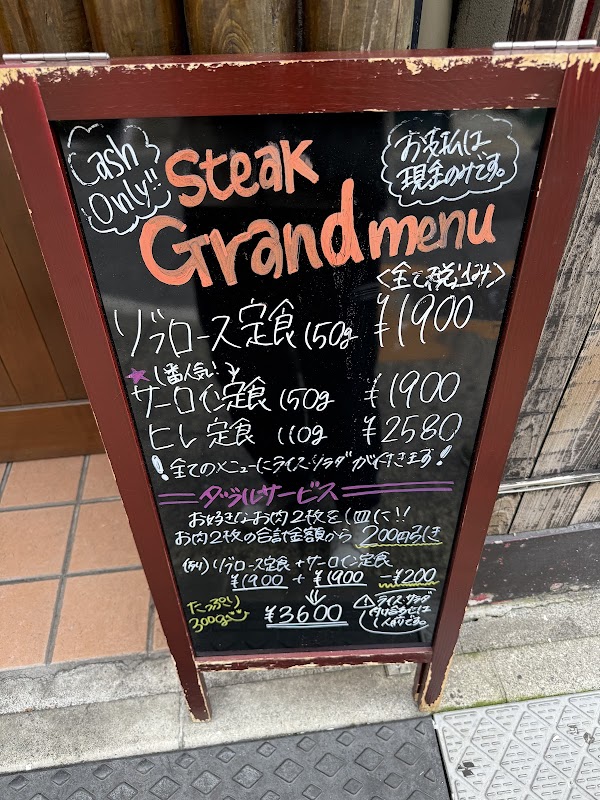 Cash
Only!!
お支払は
現金のみです。
Steak
Grand menu
<全て税込み>
リブロース定食 150g ¥1900
★1番人気!
サーロイン定食 150g ¥1900
ヒレ定食 110g ¥2580
!全てのメニューにライス・サラダが付きます!
ダブルサービス
お好きなお肉2枚を1皿に!!
お肉2枚の合計金額から200円引き
(例)リブロース定食+サーロイン定食
¥1900 + ¥1900 -¥200
¥3600
たっぷり
300g
ライス・サラダ
付け合わせは
1人前です。